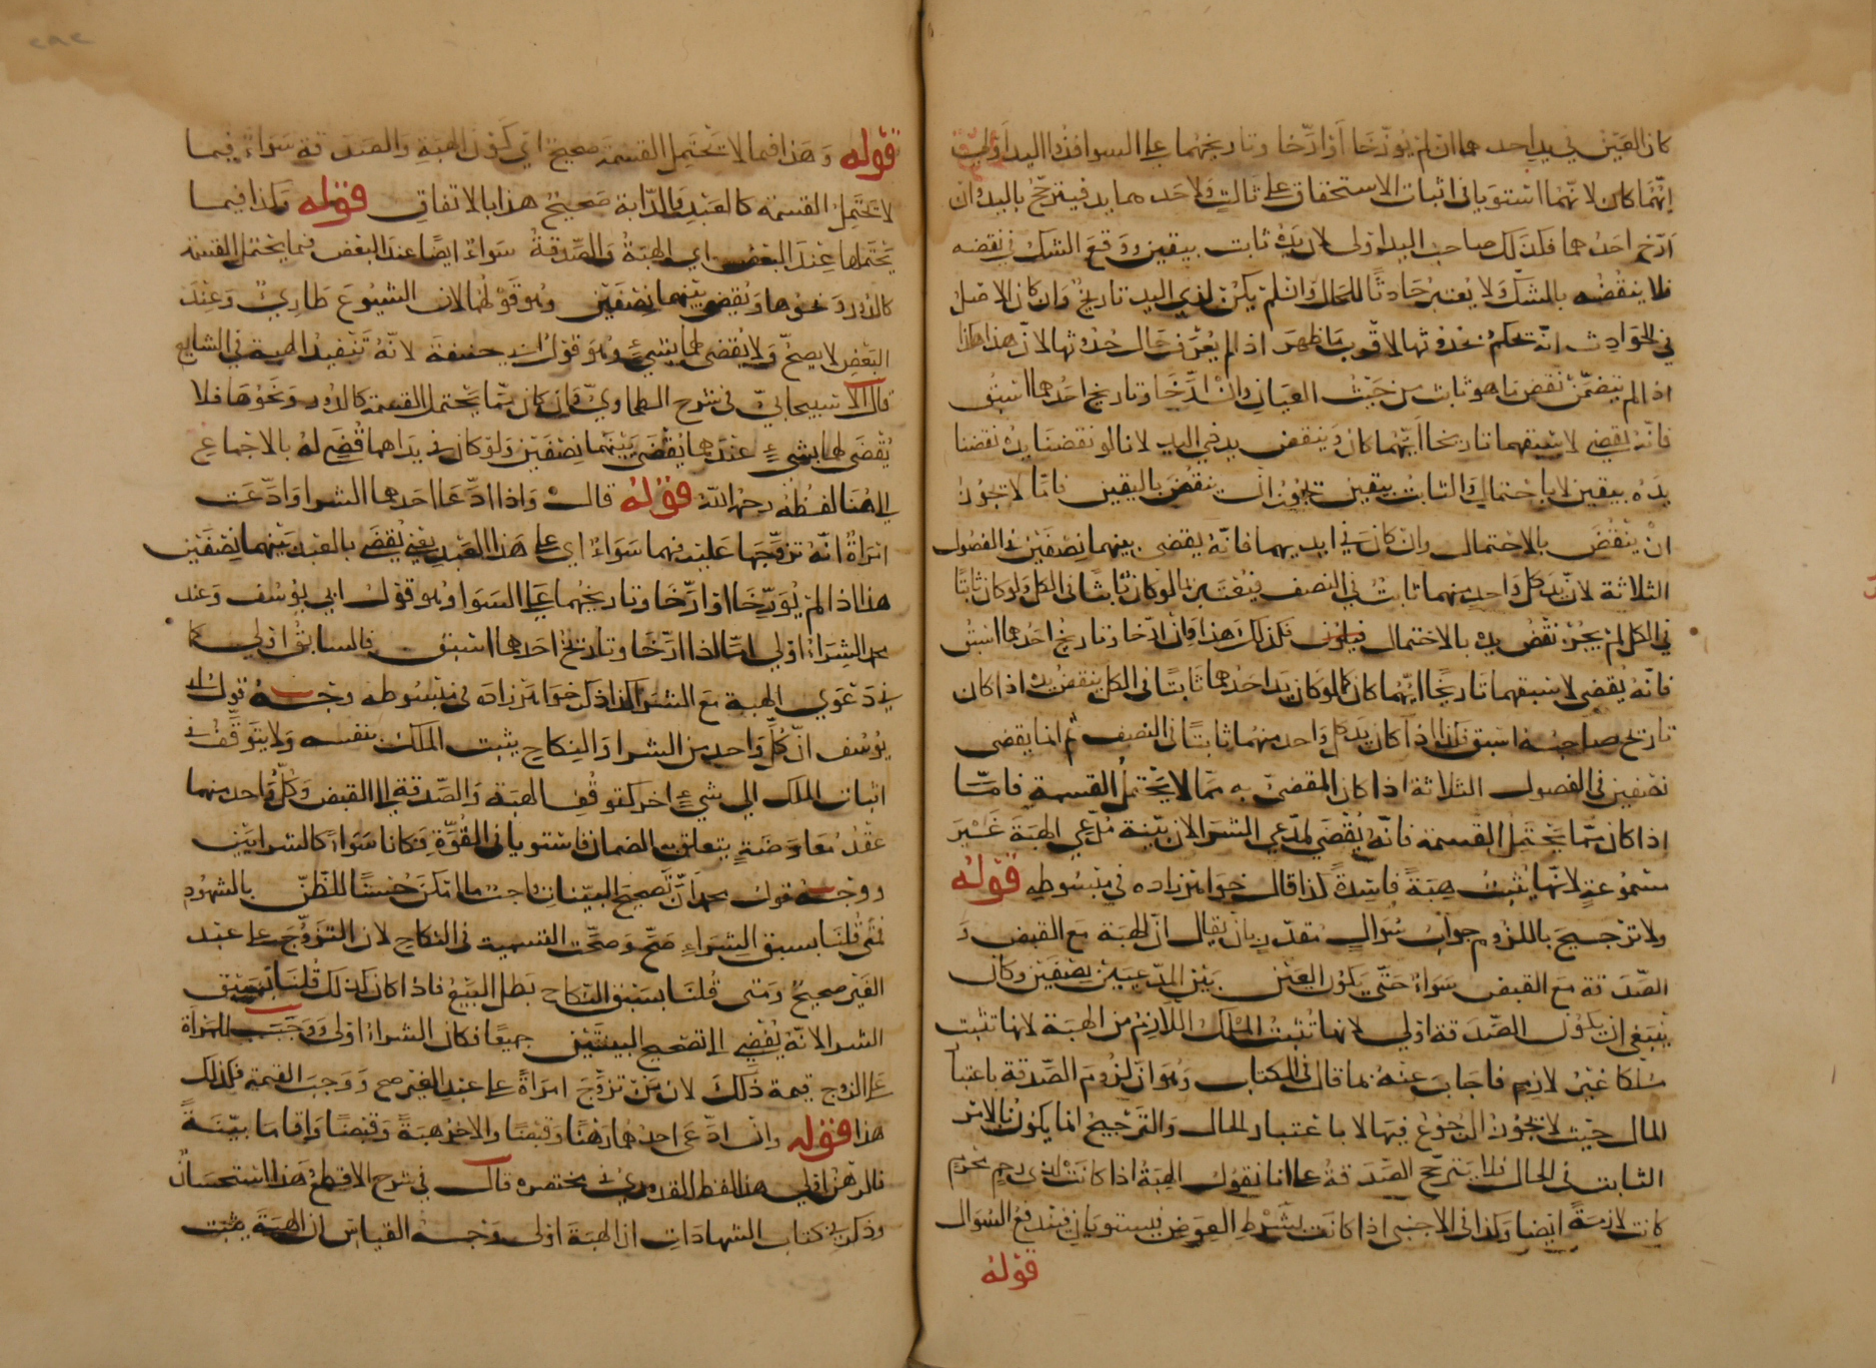 كان العين في يد احدهما ان لم يؤرّخا أو ارّخا وتاريخهما على السوا فذو اليد أولى
انهما كان لانهما استويا فى اثبات الاستحقاق على ثالث ولاحدهما يد فيترجح باليد وان
ارّخ احدهما فكذلك صاحب اليد اولى لان يده ثابت بيقين ووقع الشك في نقضه
فلا ينقضه بالشك ولا يعتبر حادثًا للحال وان لم يكن لذي اليد تاريخ وان كان الاصل
في الحوادث انه يحكم بحدوثها لاقرب ما ظهر اذا لم يعرف حال حدوثها لان هذا هكذا
اذا لم يتضمّن نقض ما هو ثابت من حيث العيان وان ارّخا وتاريخ احدهما اسبق
فانه يقضي لاسبقهما تاريخا ايهما كان وينقض يد ذي اليد لانا لو نقضنا يده نقضنا
يده بيقين لا باحتمال والثابت بيقين يجوز ان ينقض باليقين فامّا لا يجوز
ان ينقض بالاحتمال وان كان في ايديهما فانه يقضى بينهما نصفين في الفصول
الثلاثة لان يد كل واحد منهما ثابت في النصف فيعتبر بما لو كان ثابتًا فى الكل ولو كان ثابتًا
في الكل لم يجز نقض يده بالاحتمال فكذلك هذا وان ارّخا وتاريخ احدهما اسبق
فانه يقضى لاسبقهما تاريخًا ايهما كان كما لو كان يد احدهما ثابتًا فى الكل ينقض يده اذا كان
تاريخ صاحبه اسبق فكذا اذا كان يد كل واحد منهما ثابتًا فى النصف ثم انما يقضى
نصفين فى الفصول الثلاثة اذا كان المقضيّ به ممّا لا يحتمل القسمة فامّا
اذا كان ممّا يحتمل القسمة فانه يقضى لمدّعي الشرا لان بيّنة مدّعي الهبة غير
مسموعة لانها تثبت هبةً فاسدةً كذا قال خواهرزاده في مبسوطه قوله
ولا ترجيح باللزوم جواب سؤال مقدّر بان يقال ان الهبة مع القبض و
الصدقة مع القبض سواء حتى يكون العين بين المدّعيين نصفين وكان
ينبغي ان يكون الصّدقة اولى لانها تثبت الملك اللازم من الهبة لانها تثبت
ملكا غير لازم فاجاب عنه بما قال فى الكتاب وهو ان لزوم الصّدقة باعتبا
المال حيث لا يجوز الرجوع فيها لا باعتبار الحال والترجيح انما يكون بالامر
الثابت فى الحال فلا يترجّح الصّدقة على انا نقول الهبة اذا كانت لذى رحم محرم
كانت لازمةً ايضا وكذا فى الاجنبي اذا كانت بشرط العوض يستويان فيندفع السؤال
قوله
قوله وهذا فيما لا يحتمل القسمة صحيح اي كون الهبة والصدقة سواءً فيما
لا يحتمل القسمة كالعبد والدّابة صحيح هذا بالاتفاق قوله وكذا فيما
يحتملها عند البعض اي الهبة والصّدقة سواء ايضًا عند البعض فيما يحتمل القسمة
كالدور ونحوها ويقضى بينهما نصفين وهو قولهما لان الشيوع طاريٌ وعند
البعض لا يصحّ ولا يقضى لهما بشيء وهو قول ابي حنيفة لانه تنفيذ الهبة في الشايع
قال الاسبيجابيّ فى شرح الطحاويّ وان كان ممّا يحتمل القسمة كالدور ونحوها فلا
يقضى لهما بشيءٍ عنده وعندهما يقضى بينهما نصفين ولو كان في يد احدهما قضى له بالاجماع
الى هنا لفظه رحمه الله قوله قال واذا ادّعا احدهما الشرا وادّعت
امراةٌ انّه تزوّجها عليه فهما سواءٌ اي على هذا العبد يعني يقضى بالعبد بينهما نصفين
هذا اذا لم يؤرّخا او ارّخا وتاريخهما على السوا وهو قول ابي يوسف وعند
محمد الشراء اولى امّا اذا ارّخا وتاريخ احدهما اسبق فالسابق اولى كما
في دعوي الهبة مع الشرا كذا ذكر خواهرزاده فى مبسوطه وجه قول ابي
يوسف انّ كل واحد من الشرا والنكاح يثبت الملك بنفسه ولا يتوقّف في
اثبات الملك الى شيءٍ اخر كتوقف الهبة والصّدقة الى القبض وكلّ واحد منهما
عقد معاوضةٍ يتعلق به الضمان فاستويا فى القوّة فكانا سواءً كالشرايين
ووجه قول محمد انّ تصحيح البيّنات واجب ما امكن حسنًا للظنّ بالشهود
فمتى قلنا بسبق الشراءِ صحّ وصحّت التسمية فى النكاح لان التزوّج على عبد
الغير صحيحٌ ومتى قلنا بسبق النكاح بطل البيع فاذا كان كذلك قلنا بسبق
الشرا لانه يفضي الى تصحيح البينتين جميعًا فكان الشراءُ اولى ووجب للمراة
على الزوج قيمة ذلك لان من تزوّج امراةً على عبد الغير صح ووجب القيمة فكذلك
هذا قوله وان ادّعى احدهما رهنًا وقبضًا والاخر هبةً وقبضًا واقاما بيّنةً
فالرهن اولى هذا لفظ القدوري في مختصره قال في شرح الاقطع هذا استحسان
وذكر في كتاب الشهادات ان الهبة اولى وجه القياس ان الهبة يثبت